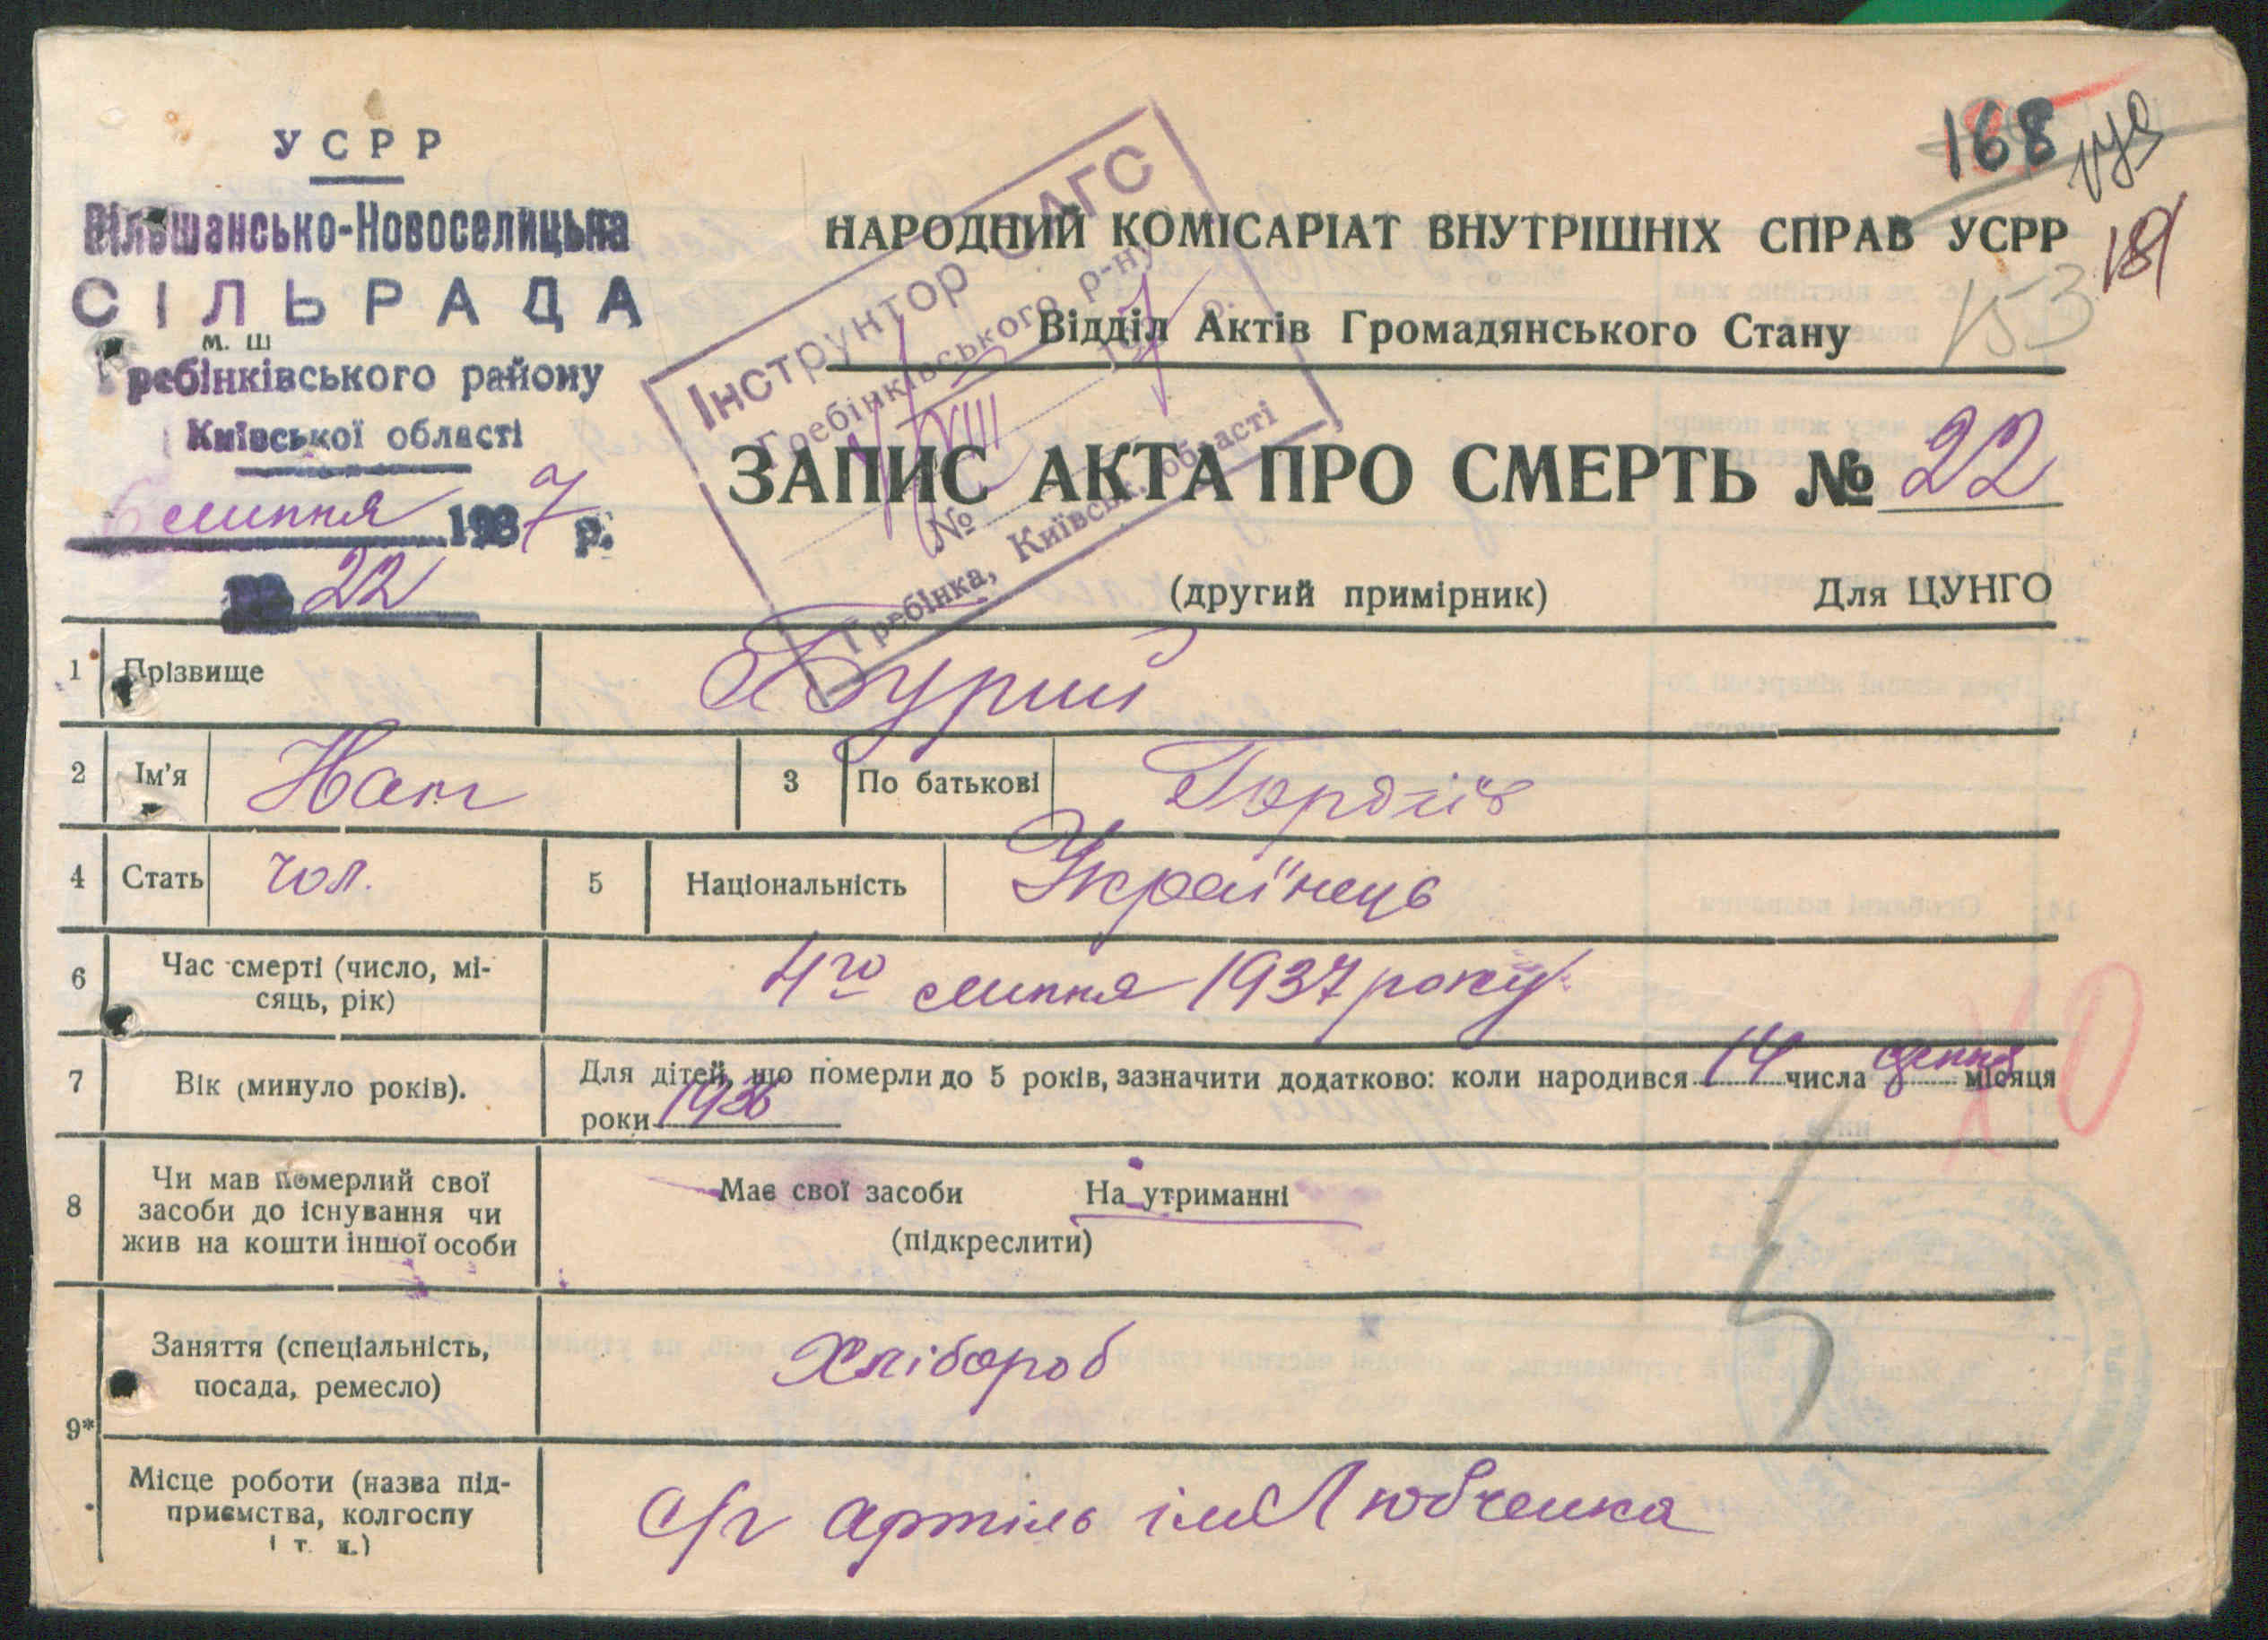 УСРР
Вільшансько-Новоселицька
СІЛЬРАДА
м. ш
Гребінківського району
Київської області
6 липня 1937 р.
22
168
181
153
Інструктор ЗАГС
Гребінківського р-ну
VIII 1937 р.
№
Гребінка, Київськ. області
НАРОДНИЙ КОМІСАРІАТ ВНУТРІШНІХ СПРАВ УСРР
Відділ Актів Громадянського Стану
ЗАПИС АКТА ПРО СМЕРТЬ № 22
(другий примірник) Для ЦУНГО
1 Прізвище Бурий
2 Ім'я 3 По батькові Гордіїв
4 Стать чол. 5 Національність Українець
6 Час смерті (число, мі-
сяць, рік) 4го липня 1937 року
7 Вік (минуло років). Для дітей, що померли до 5 років, зазначити додатково: коли народився 14 числа серпня місяця
роки 1936
8 Чи мав померлий свої
засоби до існування чи
жив на кошти іншої особи
Має свої засоби На утриманні
(підкреслити)
9* Заняття (спеціальність,
посада, ремесло) Хлібороб
Місце роботи (назва під-
приємства, колгоспу
і т. и.) с/г артіль ім Любченка